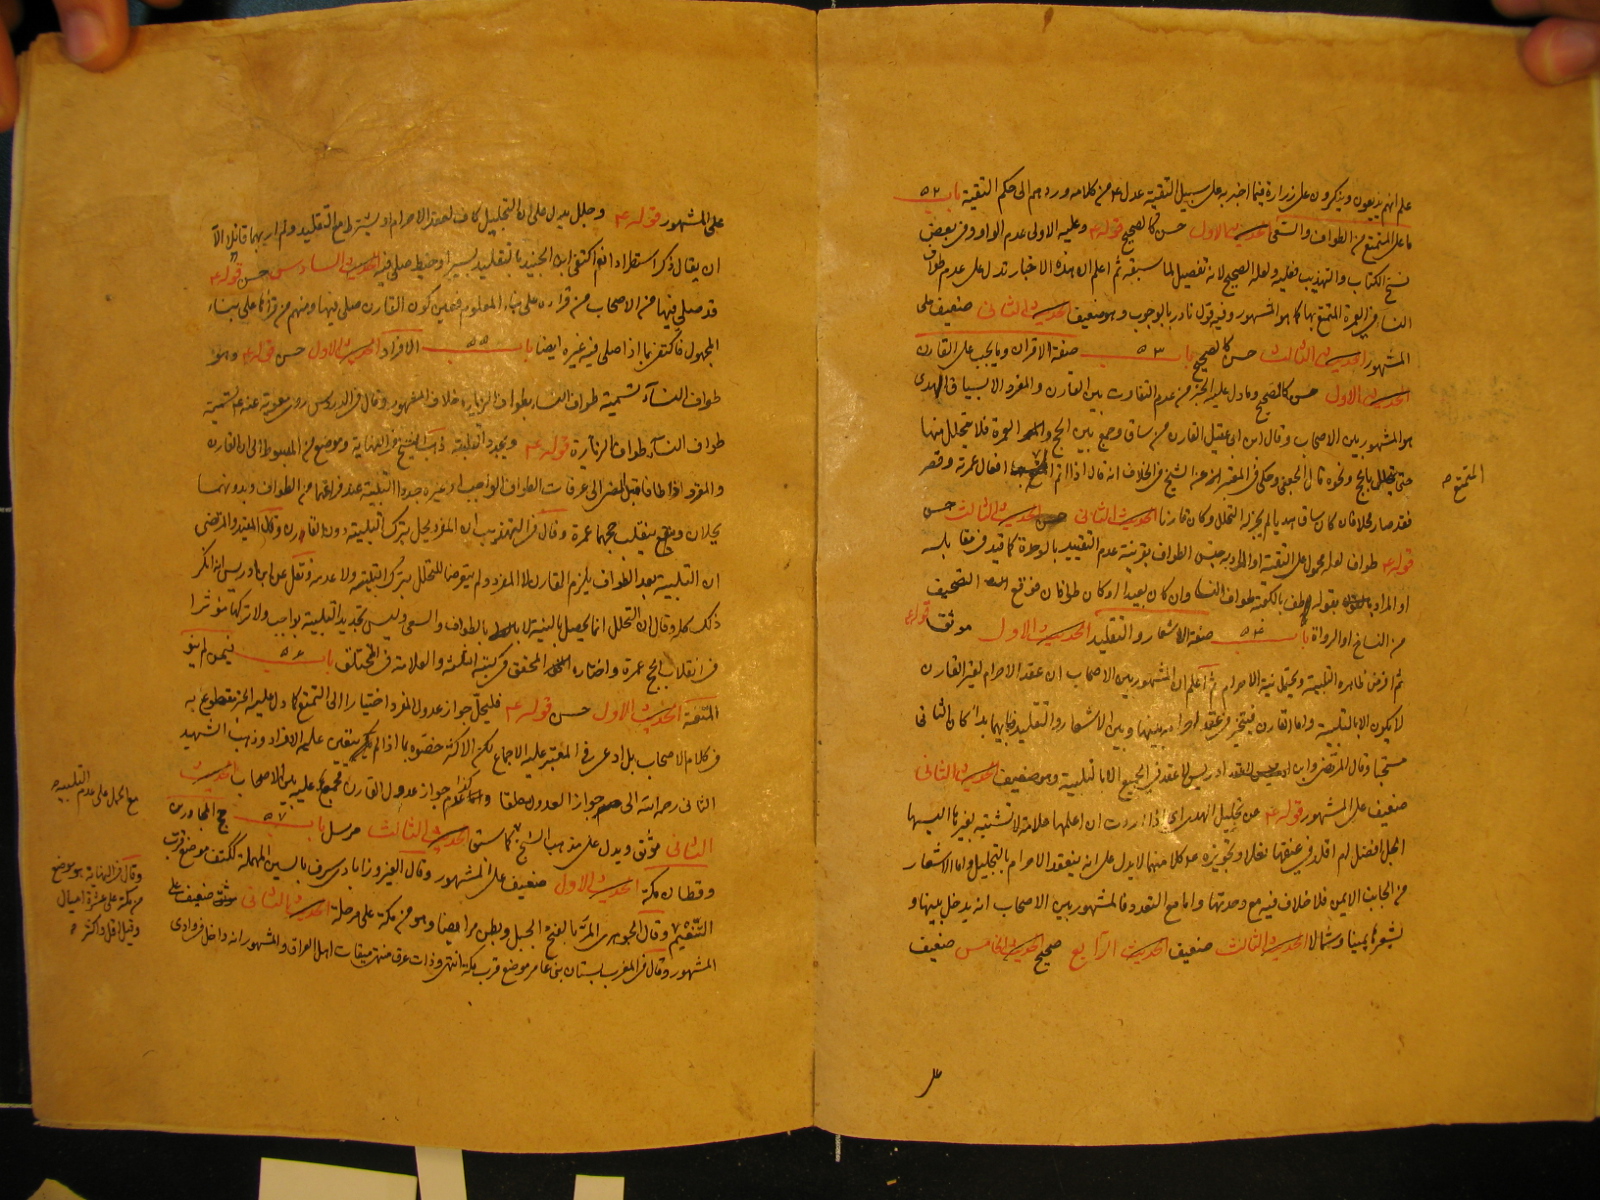 علم انهم يذيعون وينكرون على زرارة فيما اخبر به على سبيل التقية عدل ع من كلامه وردهم الى حكم التقية باب ٥٢
ما على المتمتع من الطواف والسعى الحديث الاول حسن كالصحيح قوله ع وعليه الاولى عدم الواو وفى بعض
نسخ الكتاب والتهذيب فعليه ولعله الصحيح لانه تفصيل لما سبق ثم اعلم ان هذه الاخبار تدل على عدم طواف
النساء فى العمرة المتمتع بها كما هو المشهور وفيه قول نادر بالوجوب وهو ضعيف الحديث الثانى ضعيف على
المشهور الحديث الثالث حسن كالصحيح باب ٥٣ صفة الاقران وما يجب على القارن
الحديث الاول حسن كالصحيح وما دل عليه الخبر من عدم التفاوت بين القارن والمفرد الا بسياق الهدى
هو المشهور بين الاصحاب وقال ابن ابى عقيل القارن من ساق وجمع بين الحج والعمرة فلا يتحلل منها
حتى يتحلل بالحج ونحوه قال الجعفى وحكى فى المعتبر عن الشيخ فى الخلاف انه قال اذا اتم افعال عمرته وقصر
المتمتع صح
فقد صار محلا فان كان ساق هديا لم يجز له التحلل وكان قارنا الحديث الثانى حسن الحديث الثالث حسن
قوله ع طواف لعله محمول على التقية او المراد به جنس الطواف بقرينة عدم التقييد بالوحدة كما قيد فى مقابله
او المراد بقوله بالكعبة طواف النساء وان كان بعيدا وكان طوافان فوقع التصحيف
من النساخ او الرواة باب ٥٤ صفة الاشعار والتقليد الحديث الاول موثق قوله ع
ثم افرض ظاهره التلبية ويحتمل نية الاحرام ثم اعلم ان المشهور بين الاصحاب ان عقد الاحرام لغير القارن
لا يكون الا بالتلبية واما القارن فيتخير فى عقد احرامه بينها وبين الاشعار والتقليد فبايهما بدا كان الثانى
مستحبا وقال المرتضى وابن ادريس لا عقد فى الجميع الا بالتلبية وهو ضعيف الحديث الثانى
ضعيف على المشهور قوله ع عن تجليل الهدى اى اذا اردت ان اعلمها علامة لا تشتبه بغيرها البسها
الجل افضل ام اقلد فى عنقها نعلا وتجويزه ع كلا منهما لا يدل على انه ينعقد الاحرام بالتجليل واما الاشعار
من الجانب الايمن فلا خلاف فيه مع وحدتها واما مع التعدد فالمشهور بين الاصحاب انه يدخل بينها و
يشعرها يمينا وشمالا الحديث الثالث ضعيف الحديث الرابع صحيح الحديث الخامس ضعيف
على المشهور قوله ع وجلل يدل على ان التجليل كاف لعقد الاحرام او يشترط مع التقليد ولم ار بهما قائلا الا
ان يقال ذكر استطرادا نعم اكتفى ابن الجنيد بالتقليد بسير او خيط صلى فيه الحديث السادس حسن قوله ع
قد صلى فيها من الاصحاب من قرا على بناء المعلوم فعين كون القارن صلى فيها ومنهم من قرا على بناء
المجهول فاكتفى بما اذا صلى فيه غيره ايضا باب ٥٥ الافراد الحديث الاول حسن قوله ع وهو
طواف النساء تسميته طواف النساء بطواف الزيارة خلاف المشهور وقال فى الدروس روى معوية عنه ع تسمية
طواف النساء طواف الزيارة قوله ع ويجدد التلبية ذهب الشيخ فى النهاية وموضع من المبسوط الى ان القارن
والمفرد اذا طافا قبل المضى الى عرفات الطواف الواجب او غيره جددا التلبية عند فراغهما من الطواف وبدونهما
يحلان وينقلب حجهما عمرة وقال فى التهذيب ان المفرد يحل بترك التلبية دون القارن وقال المفيد والمرتضى
ان التلبية بعد الطواف يلزم القارن لا المفرد ولم يتعرضا للتحلل بترك التلبية ولا عدمه ونقل عن ابن ادريس انه انكر
ذلك كله وقال ان التحلل انما يحصل بالنية لا بالطواف والسعى وليس تجديد التلبية بواجب ولا تركها مؤثرا
فى انقلاب الحج عمرة واختاره المحقق فى كتبه الثلثة والعلامة فى المختلف باب ٥٦ فيمن لم ينو
المتعة الحديث الاول حسن قوله ع فليحل جواز عدول المفرد اختيارا الى التمتع كما دل عليه الخبر مقطوع به
فى كلام الاصحاب بل ادعى فى المعتبر عليه الاجماع لكن الاكثر خصوه بما اذا لم يتعين عليه الافراد وذهب الشهيد
الثانى رحمه الله الى جواز العدول مطلقا وكذا عدم جواز عدول القارن مجمع عليه بين الاصحاب الحديث
مع الحمل على عدم التلبية صح
الثانى موثق ويدل على مذهب الشيخ كما سبق الحديث الثالث مرسل باب ٥٧ حج المجاورين
وقطان مكة الحديث الاول ضعيف على المشهور وقال الفيروزابادى سرف بالسين المهملة ككتف موضع قرب
التنعيم وقال الجوهرى المر بالفتح الجبل وبطن مر ايضا وهو من مكة على مرحلة الحديث الثانى ضعيف على
وقال فى النهاية هو موضع
من مكة على عشرة اميال
وقيل اقل واكثر
المشهور وقال فى المغرب بستان بنى عامر موضع قرب مكة انتهى وذات عرق منتهى ميقات اهل العراق والمشهور انه داخل فى وادى